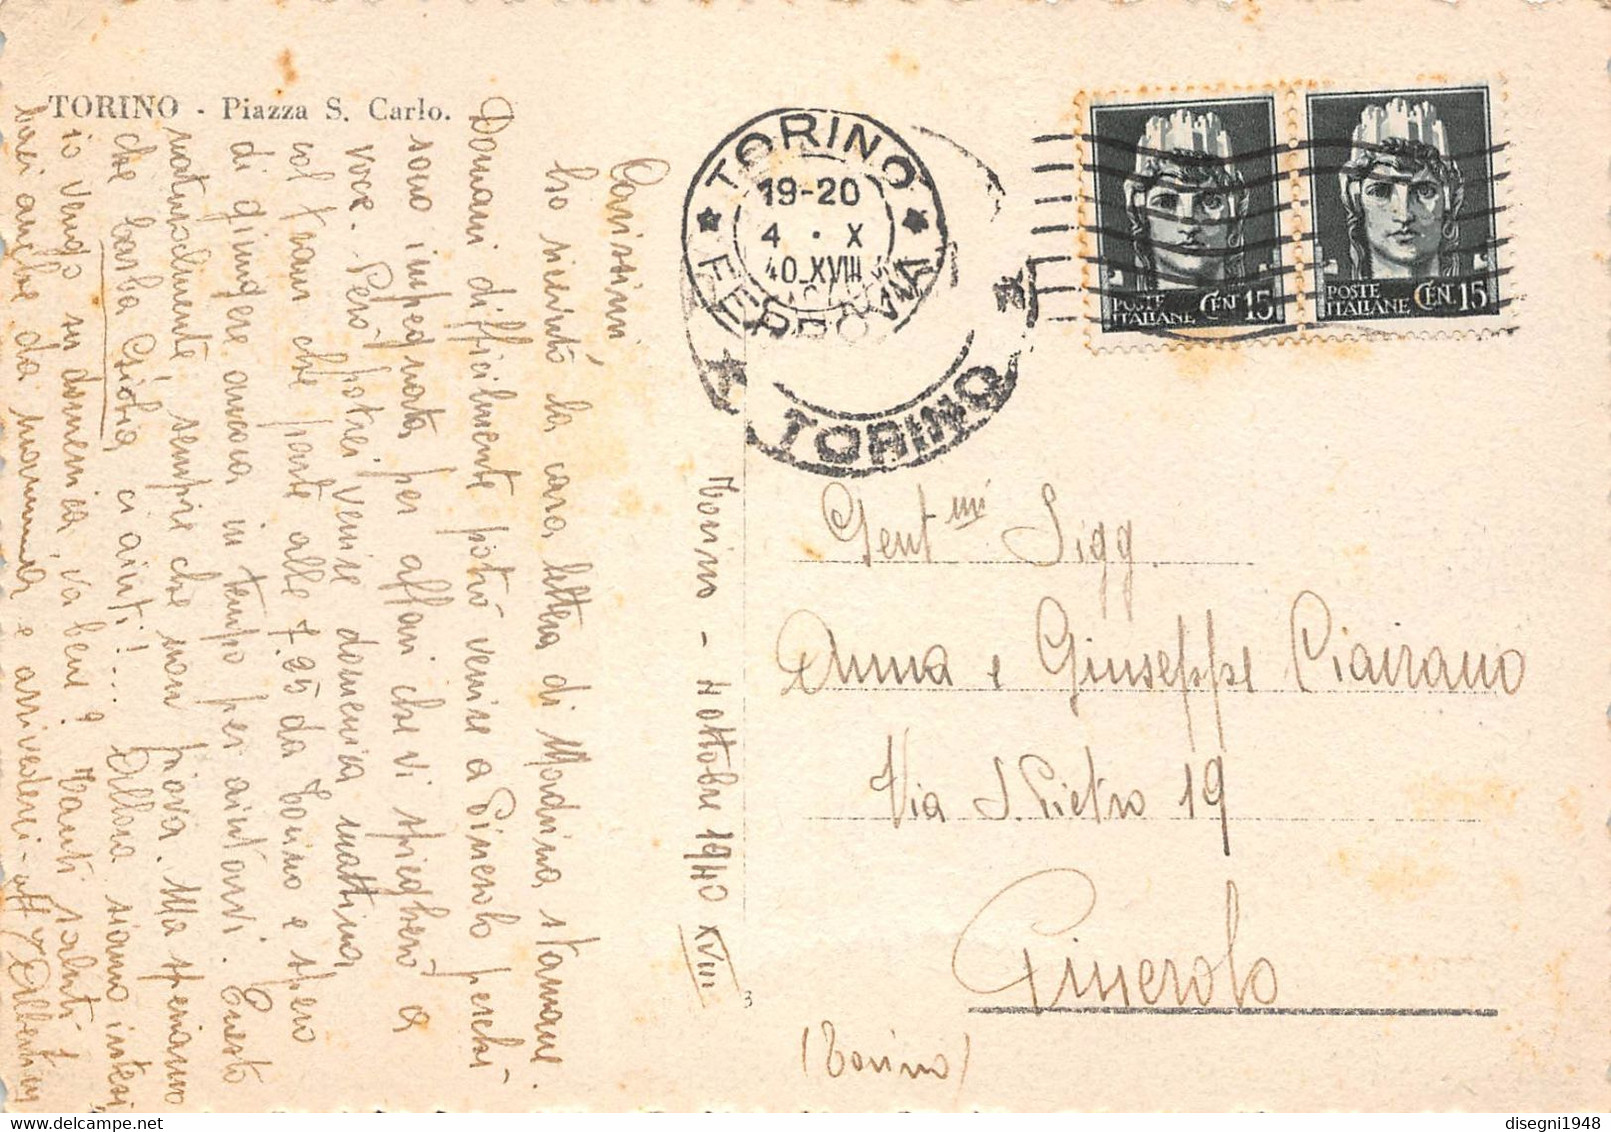 TORINO - Piazza S. Carlo.
Torino - 4 ottobre 1940 XVIII
Carissimi
ho ricevuto la cara lettera di Madrina stamane.
Domani difficilmente potrò venire a Pinerolo perchè
sono impegnata per affari che vi spiegherò a
voce. Però potrei venire domenica mattina
col tram che parte alle 7.25 da Torino e spero
di giungere ancora in tempo per aiutarvi. Questo
naturalmente, sempre che non piova. Ma speriamo
che barba Giobia ci aiuti!... Allora siamo intesi,
io vengo su domenica, va bene? Tanti saluti e
baci anche da mamma e arrivederci - aff
TORINO
19-20
4 · X
40 XVIII
FERROVIA
TORINO
POSTE ITALIANE CEN. 15
POSTE ITALIANE CEN. 15
Gent.mi Sigg.
Anna e Giuseppe Ciairano
Via S. Pietro 19
Pinerolo
(Torino)
3
disegni1948